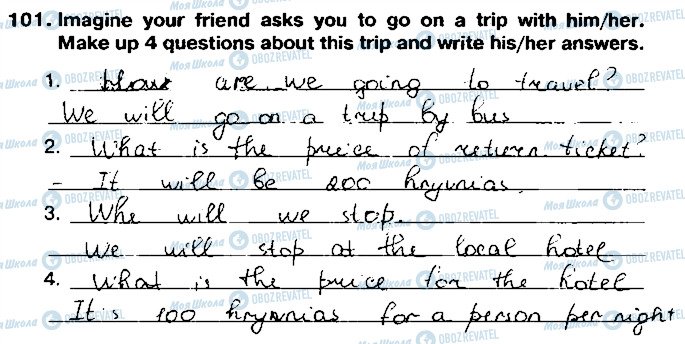 101. Imagine your friend asks you to go on a trip with him/her.
Make up 4 questions about this trip and write his/her answers.
1. How are we going to travel?
We will go on a trip by bus
2. What is the preice of return ticket?
- It will be 200 hryvnias.
3. Whe will we stop.
We will stop at the local hotel
4. What is the price for the hotel
It's 100 hryvnias for a person per night